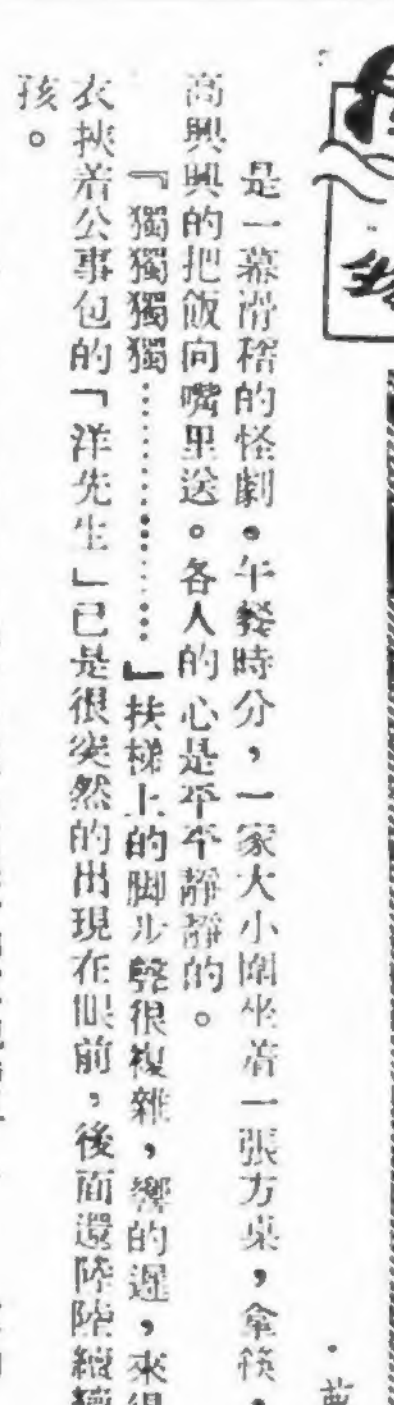 是一幕滑稽的怪劇。午餐時分，一家大小圍坐着一張方桌，拿筷，
高興興的把飯向嘴里送。各人的心是平平靜靜的。
『獨獨獨獨…………』扶梯上的脚步聲很複雜，響的遲，來得
衣挾着公事包的「洋先生」已是很突然的出現在眼前，後面還陸陸續續
孩。